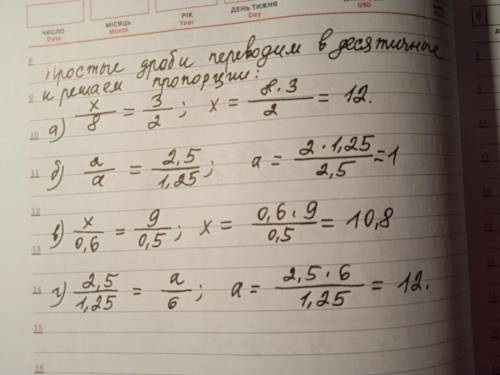 ЧИСЛО Date
МІСЯЦЬ Month
РІК Year
ДЕНЬ ТИЖНЯ Day
USD
8
Простые дроби переводим в десятичные
9
и решаем пропорции:
10 а) x/8 = 3/2 ; x = 8·3/2 = 12.
11 б) a/a = 2,5/1,25 ; a = 2·1,25/2,5 = 1
12
в) x/0,6 = 9/0,5 ; x = 0,6·9/0,5 = 10,8
13
14 г) 2,5/1,25 = a/6 ; a = 2,5·6/1,25 = 12.
15
16